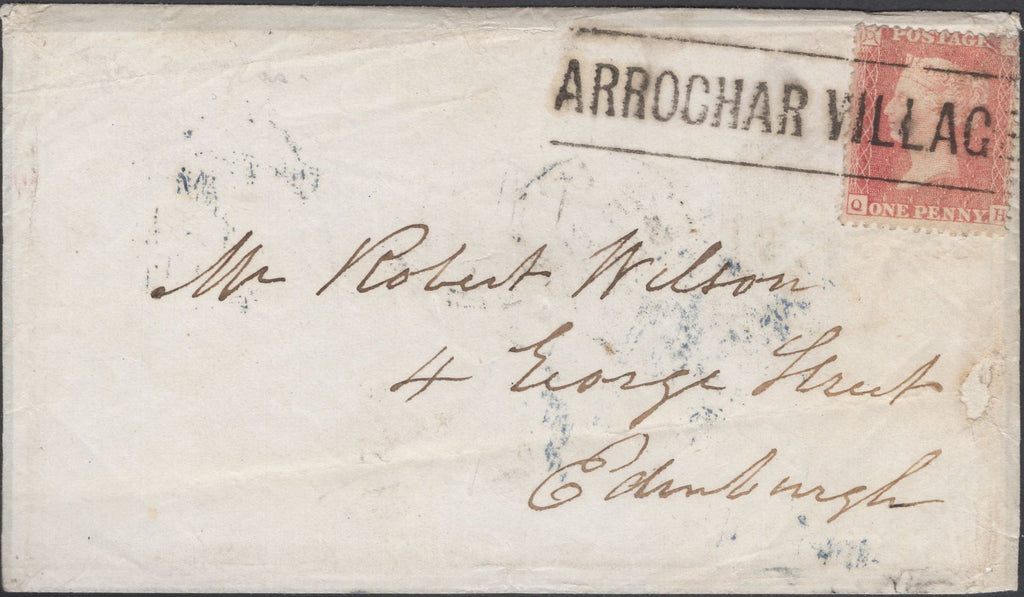 POSTAGE
ARROCHAR VILLAG
Q ONE PENNY H
Mr Robert Wilson
4 George Street
Edinburgh